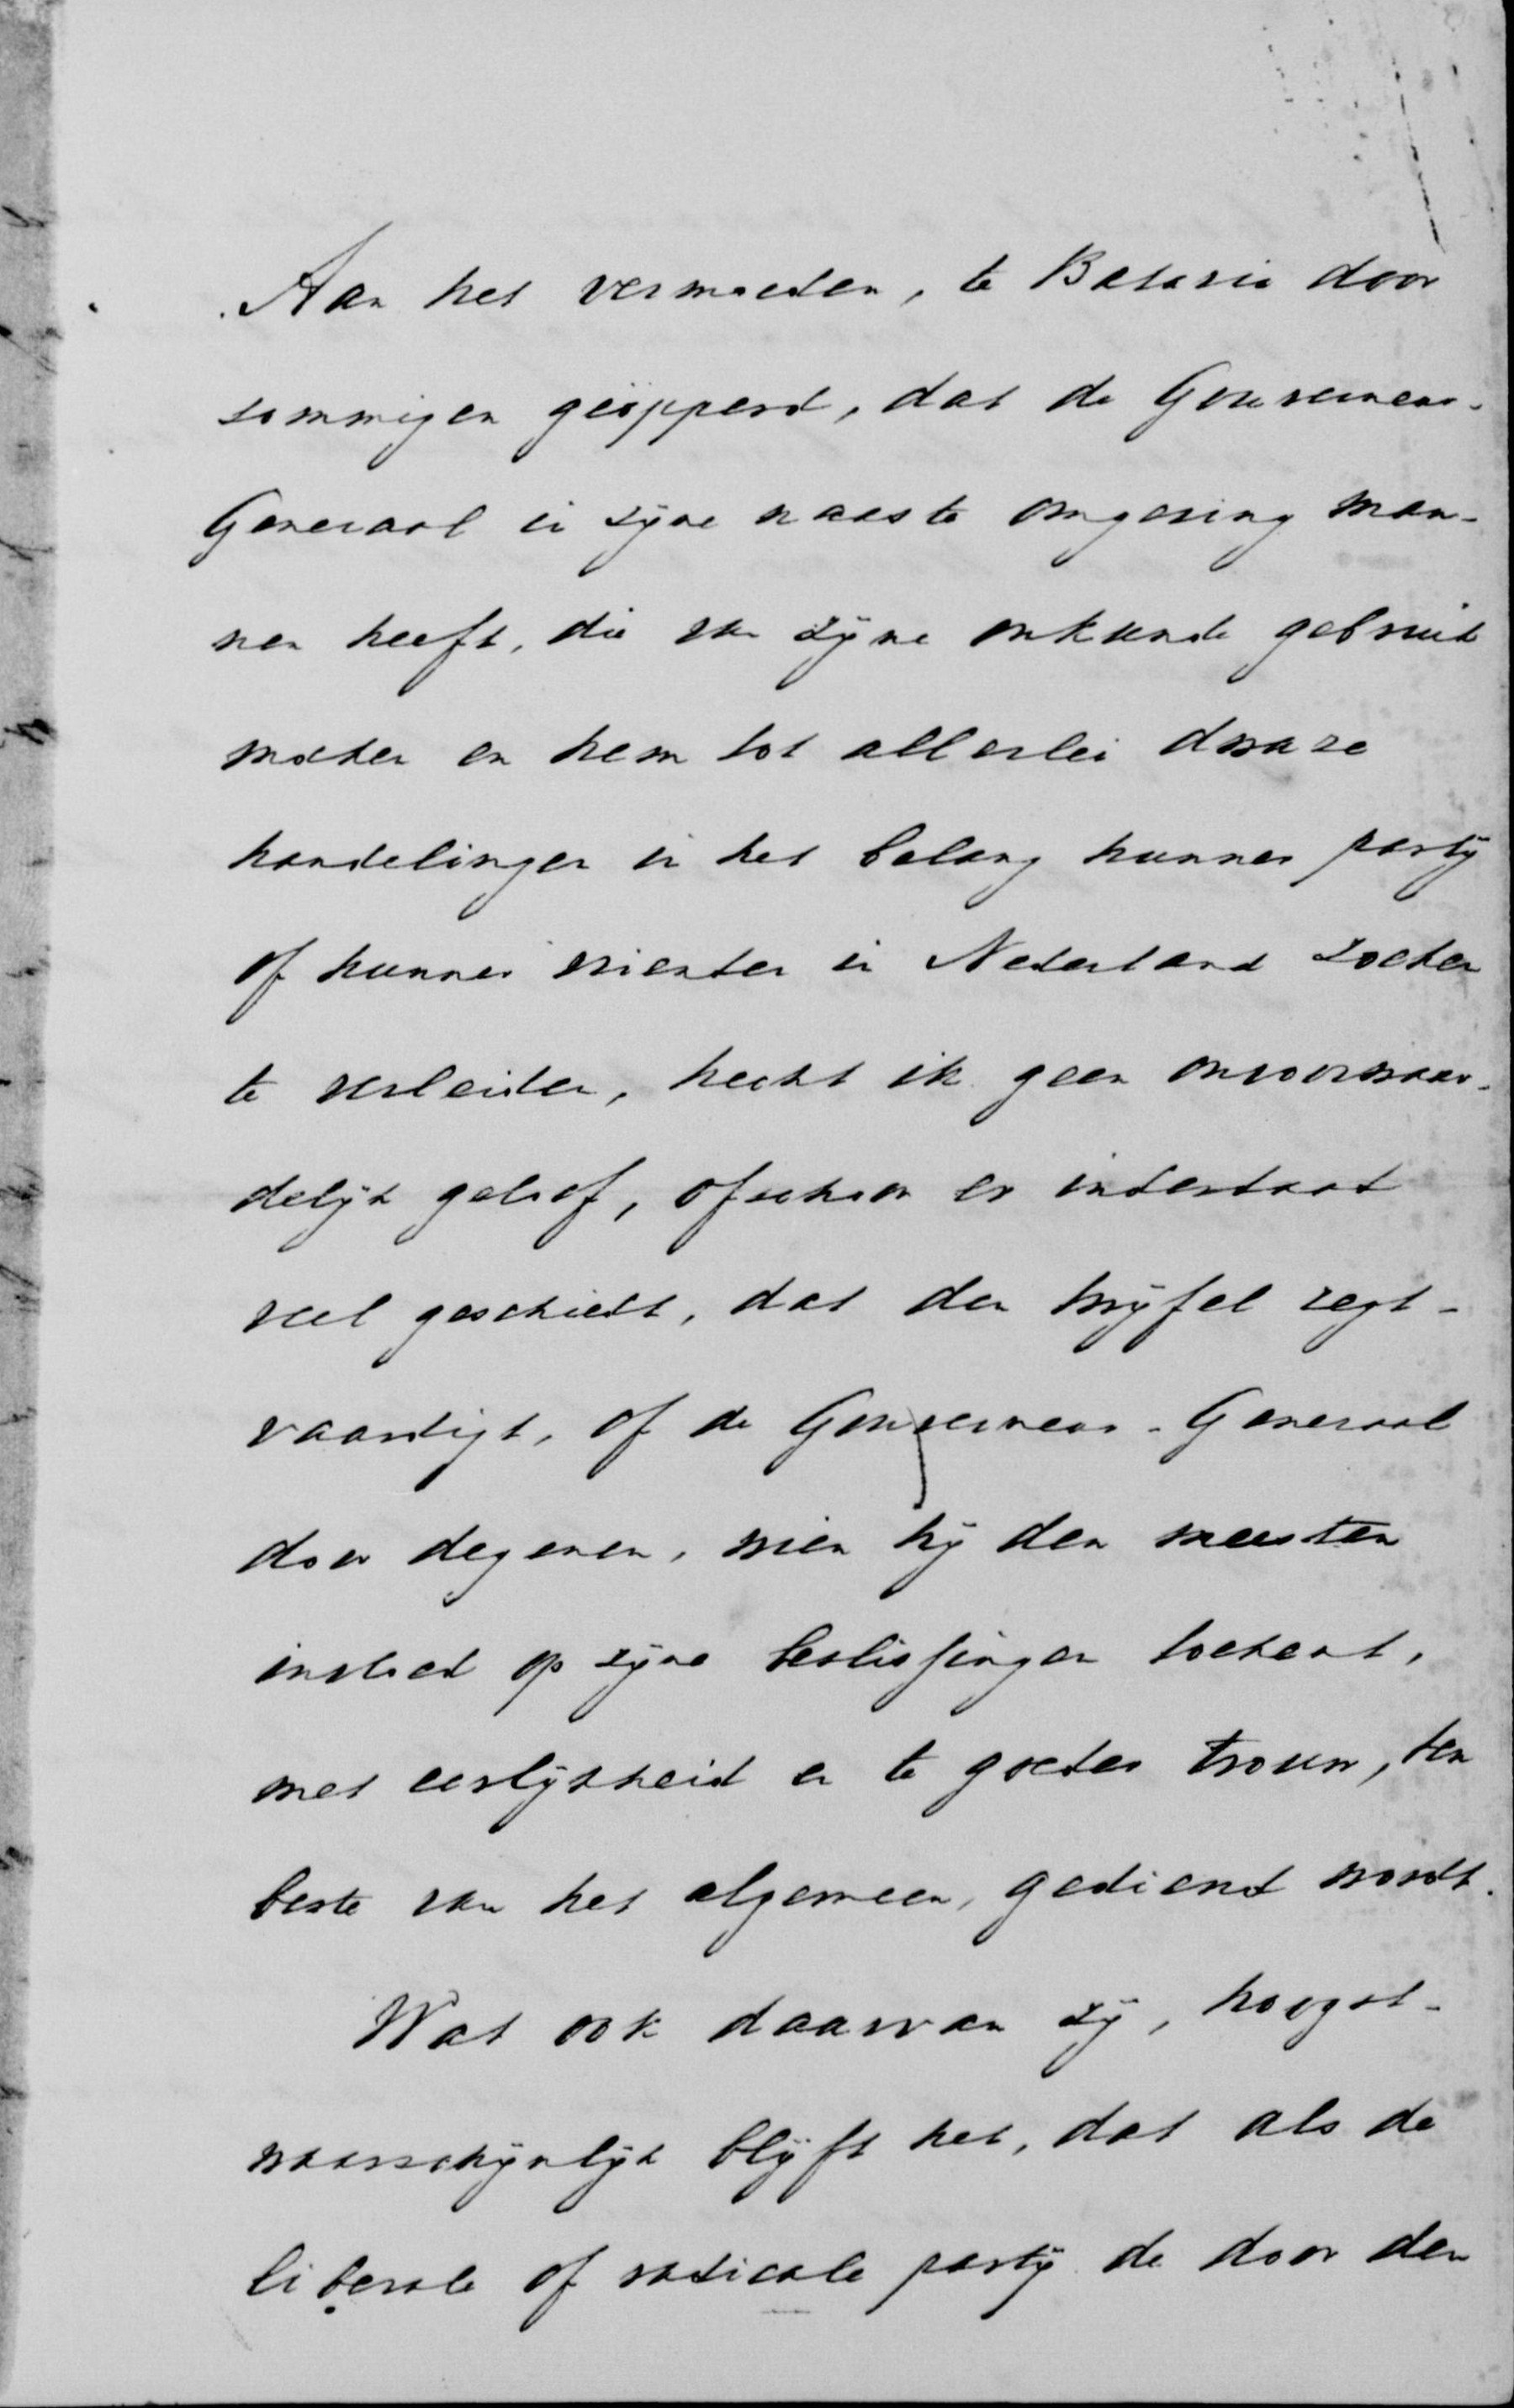 Aan het vermoeden, te Batavia door
sommigen geopperd, dat de Gouverneur-
Generaal in zijne naaste omgeving man-
nen heeft, die van zijne onkunde gebruik
maken en hem tot allerlei dwaze
handelingen in het belang hunner partij
of hunner vrienden in Nederland zoeken
te verleiden, hecht ik geen onvoorwaar-
delijk geloof, ofschoon er inderdaad
veel geschiedt, dat den twijfel regt-
vaardigt, of de Gouverneur-Generaal
door degenen, wien hij den meesten
invloed op zijne beslissingen toekent,
met eerlijkheid en te goeder trouw, ten
beste van het algemeen, gediend wordt.
Wat ook daarvan zij, hoogst-
waarschijnlijk blijft het, dat als de
liberale of radicale partij de door den